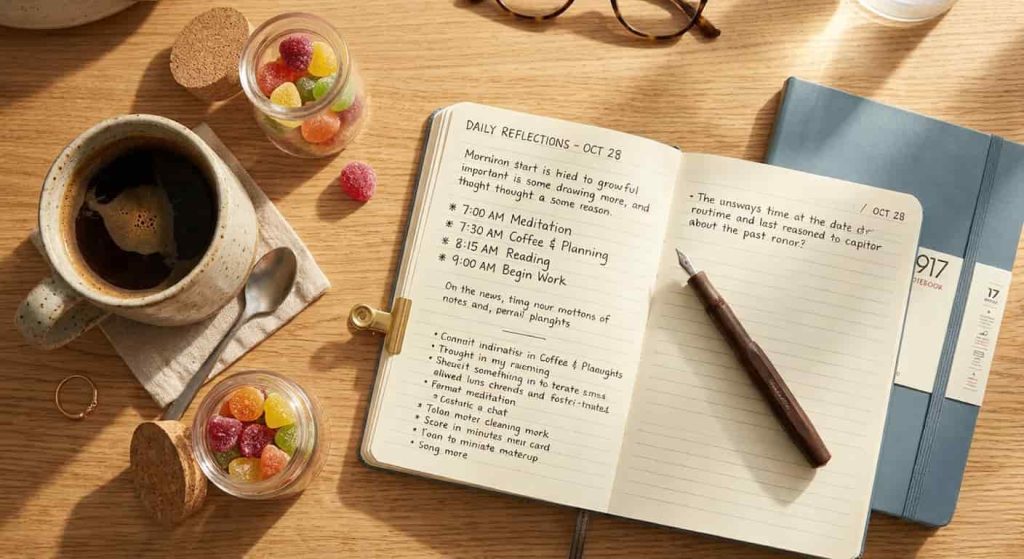 DAILY REFLECTIONS - OCT 28
Morniran start is hied to growful
important is some drawing more, and
thoght thought a some reason.
* 7:00 AM Meditation
* 7:30 AM Coffee & Planning
* 8:15 AM Reading
* 9:00 AM Begin Work
On the news, timg nour mottons of
notes and, perrail planghts
• Connait indinatise in Coffee & Plaughts
• Thought in my raeming
• Sheucit something in to terate
aliwed luns chrends and foster-trated
• Format meditation
° Costatic a chat
* Tolan moter cleaning mork
* Score in minutes meir card
* Toan to miniate materup
• Song more
/ OCT 28
• The unsways time at the date
routine and last reasoned to capitor
about the past ronor?
917
NOTEBOOK
17